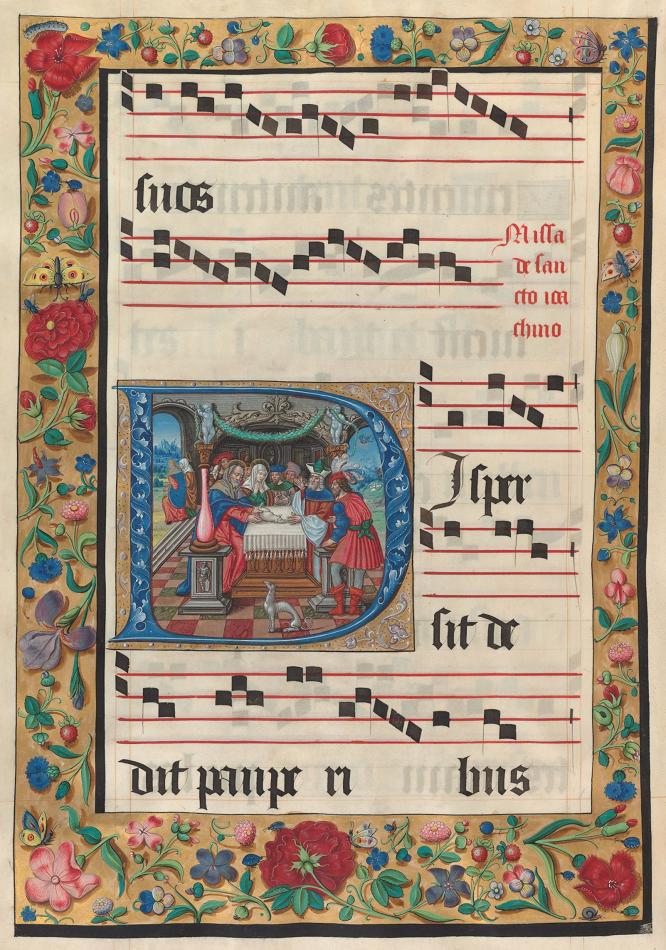 suos
Missa
de san
cto ioa
chino
DIsper
sit de
dit paupe ri bus